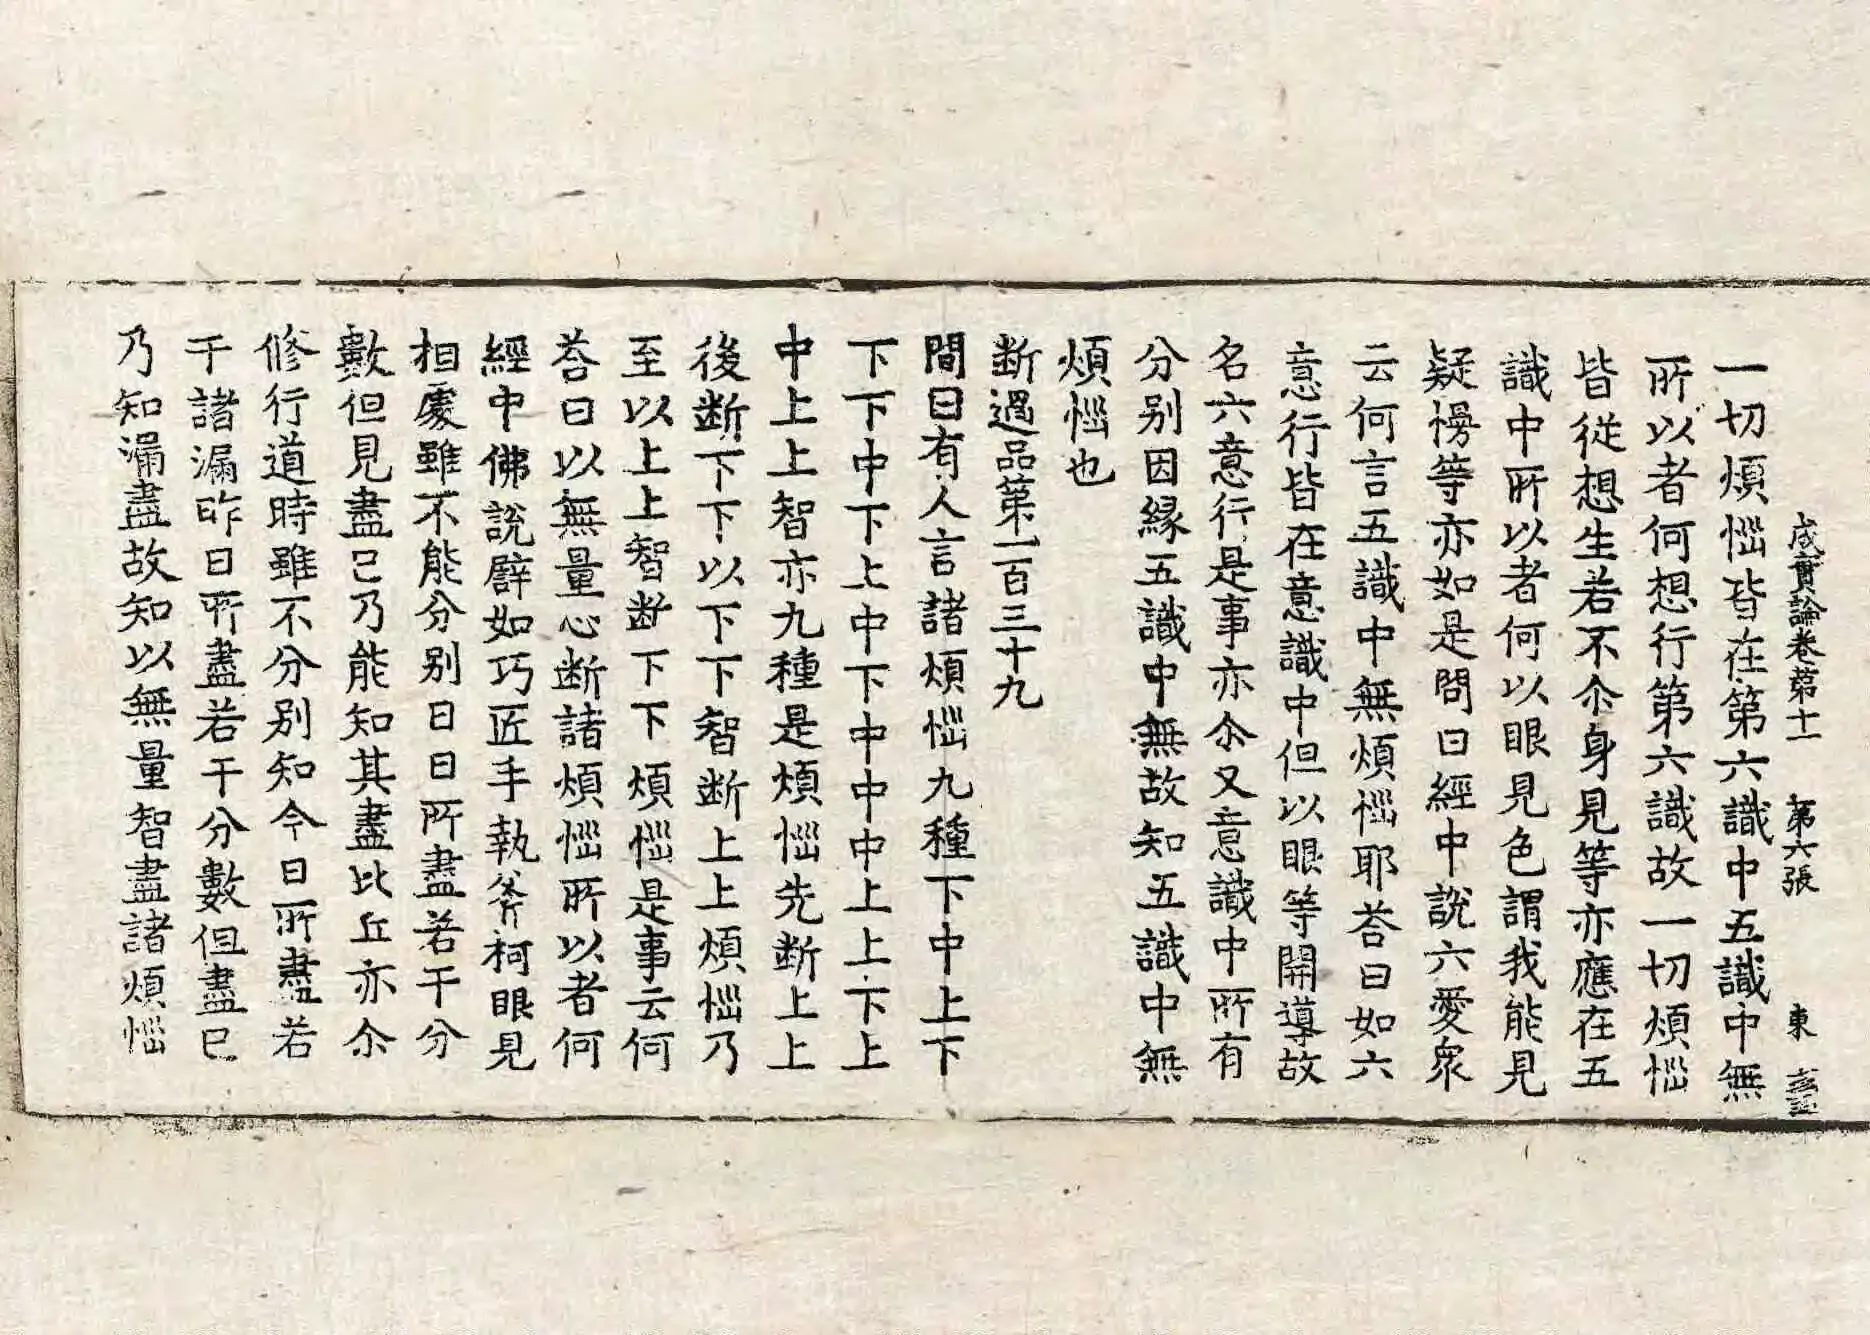 成實論卷第十一 第六張 東
一切煩惱皆在第六識中五識中無
所以者何想行第六識故一切煩惱
皆從想生若不尒身見等亦應在五
識中所以者何以眼見色謂我能見
疑慢等亦如是問曰經中說六愛衆
云何言五識中無煩惱耶荅曰如六
意行皆在意識中但以眼等開導故
名六意行是事亦尒又意識中所有
分别因緣五識中無故知五識中無
煩惱也
断過品第一百三十九
問曰有人言諸煩惱九種下中上下
下下中下上中下中中中上上下上
中上上智亦九種是煩惱先断上上
後断下下以下下智断上上煩惱乃
至以上上智断下下煩惱是事云何
荅曰以無量心断諸煩惱所以者何
經中佛說譬如巧匠手執斧柯眼見
相處雖不能分别日日所盡若干分
數但見盡已乃能知其盡比丘亦尒
修行道時雖不分别知今日所盡若
干諸漏昨日所盡若干分數但盡已
乃知漏盡故知以無量智盡諸煩惱